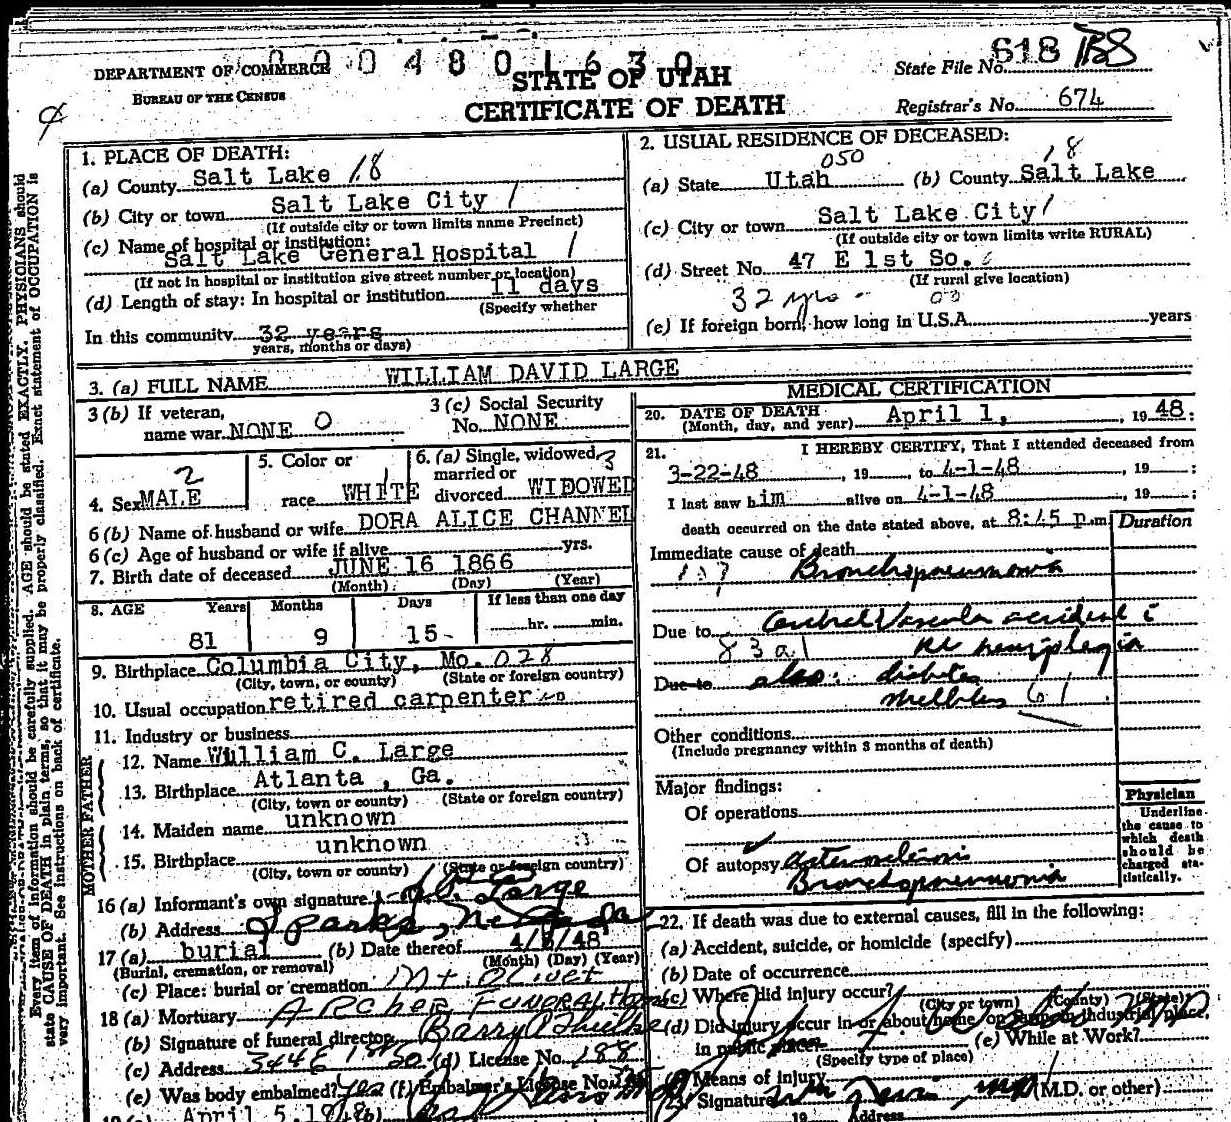 DEPARTMENT OF COMMERCE
BUREAU OF THE CENSUS
0004801630
STATE OF UTAH
CERTIFICATE OF DEATH
State File No. 618
Registrar's No. 674
Every item of information should be carefully supplied. AGE should be stated EXACTLY. PHYSICIANS should
state CAUSE OF DEATH in plain terms, so that it may be properly classified. Exact statement of OCCUPATION is
very important. See instructions on back of certificate.
1. PLACE OF DEATH:
(a) County Salt Lake 18
(b) City or town Salt Lake City 1
(If outside city or town limits name Precinct)
(c) Name of hospital or institution:
Salt Lake General Hospital 1
(If not in hospital or institution give street number or location)
(d) Length of stay: In hospital or institution 11 days
(Specify whether
In this community 32 years
years, months or days)
2. USUAL RESIDENCE OF DECEASED:
050 18
(a) State Utah (b) County Salt Lake
(c) City or town Salt Lake City 1
(If outside city or town limits write RURAL)
(d) Street No. 47 E 1st So.
(If rural give location)
32 yrs
(e) If foreign born, how long in U.S.A. years
3. (a) FULL NAME WILLIAM DAVID LARGE
3 (b) If veteran,
name war NONE 0
3 (c) Social Security
No. NONE
2
4. Sex MALE
5. Color or
race WHITE 1
6. (a) Single, widowed, 3
married or
divorced WIDOWED
6 (b) Name of husband or wife DORA ALICE CHANNEL
6 (c) Age of husband or wife if alive yrs.
7. Birth date of deceased JUNE 16 1866
(Month) (Day) (Year)
8. AGE Years Months Days If less than one day
81 9 15 hr. min.
9. Birthplace Columbia City, Mo. 028
(City, town, or county) (State or foreign country)
10. Usual occupation retired carpenter
11. Industry or business
FATHER
12. Name William C. Large
13. Birthplace Atlanta, Ga.
(City, town or county) (State or foreign country)
MOTHER
14. Maiden name unknown
15. Birthplace unknown
(City, town or county) (State or foreign country)
16 (a) Informant's own signature Large
(b) Address Sparks, Nevada
17 (a) burial (b) Date thereof 4/ /48
(Burial, cremation, or removal) (Month) (Day) (Year)
(c) Place: burial or cremation Mt. Olivet
18 (a) Mortuary Archer Funeral Home
(b) Signature of funeral director Barry
(c) Address 344 E 1st So. (d) License No. 188
(e) Was body embalmed? Yes (f) Embalmer's License No.
April 5, 19
MEDICAL CERTIFICATION
20. DATE OF DEATH
(Month, day, and year) April 1, 1948;
21. I HEREBY CERTIFY, That I attended deceased from
3-22-48, 19 , to 4-1-48, 19 ;
I last saw him alive on 4-1-48, 19 ;
death occurred on the date stated above, at 8:15 p.m. Duration
Immediate cause of death
107 Bronchopneumonia
Due to Cerebral Vascular accident c
83a1 Rt hemiplegia
Due to also: diabetes
mellitus 61
Other conditions
(Include pregnancy within 3 months of death)
Major findings:
Of operations
Of autopsy
Bronchopneumonia
Physician
Underline
the cause to
which death
should be
charged sta-
tistically.
22. If death was due to external causes, fill in the following:
(a) Accident, suicide, or homicide (specify)
(b) Date of occurrence
(c) Where did injury occur?
(City or town) (County) (State)
(d) Did injury occur in or about home, on farm, in industrial place,
in public place? (e) While at Work?
(Specify type of place)
Means of injury
Signature (M.D. or other)
19 Address